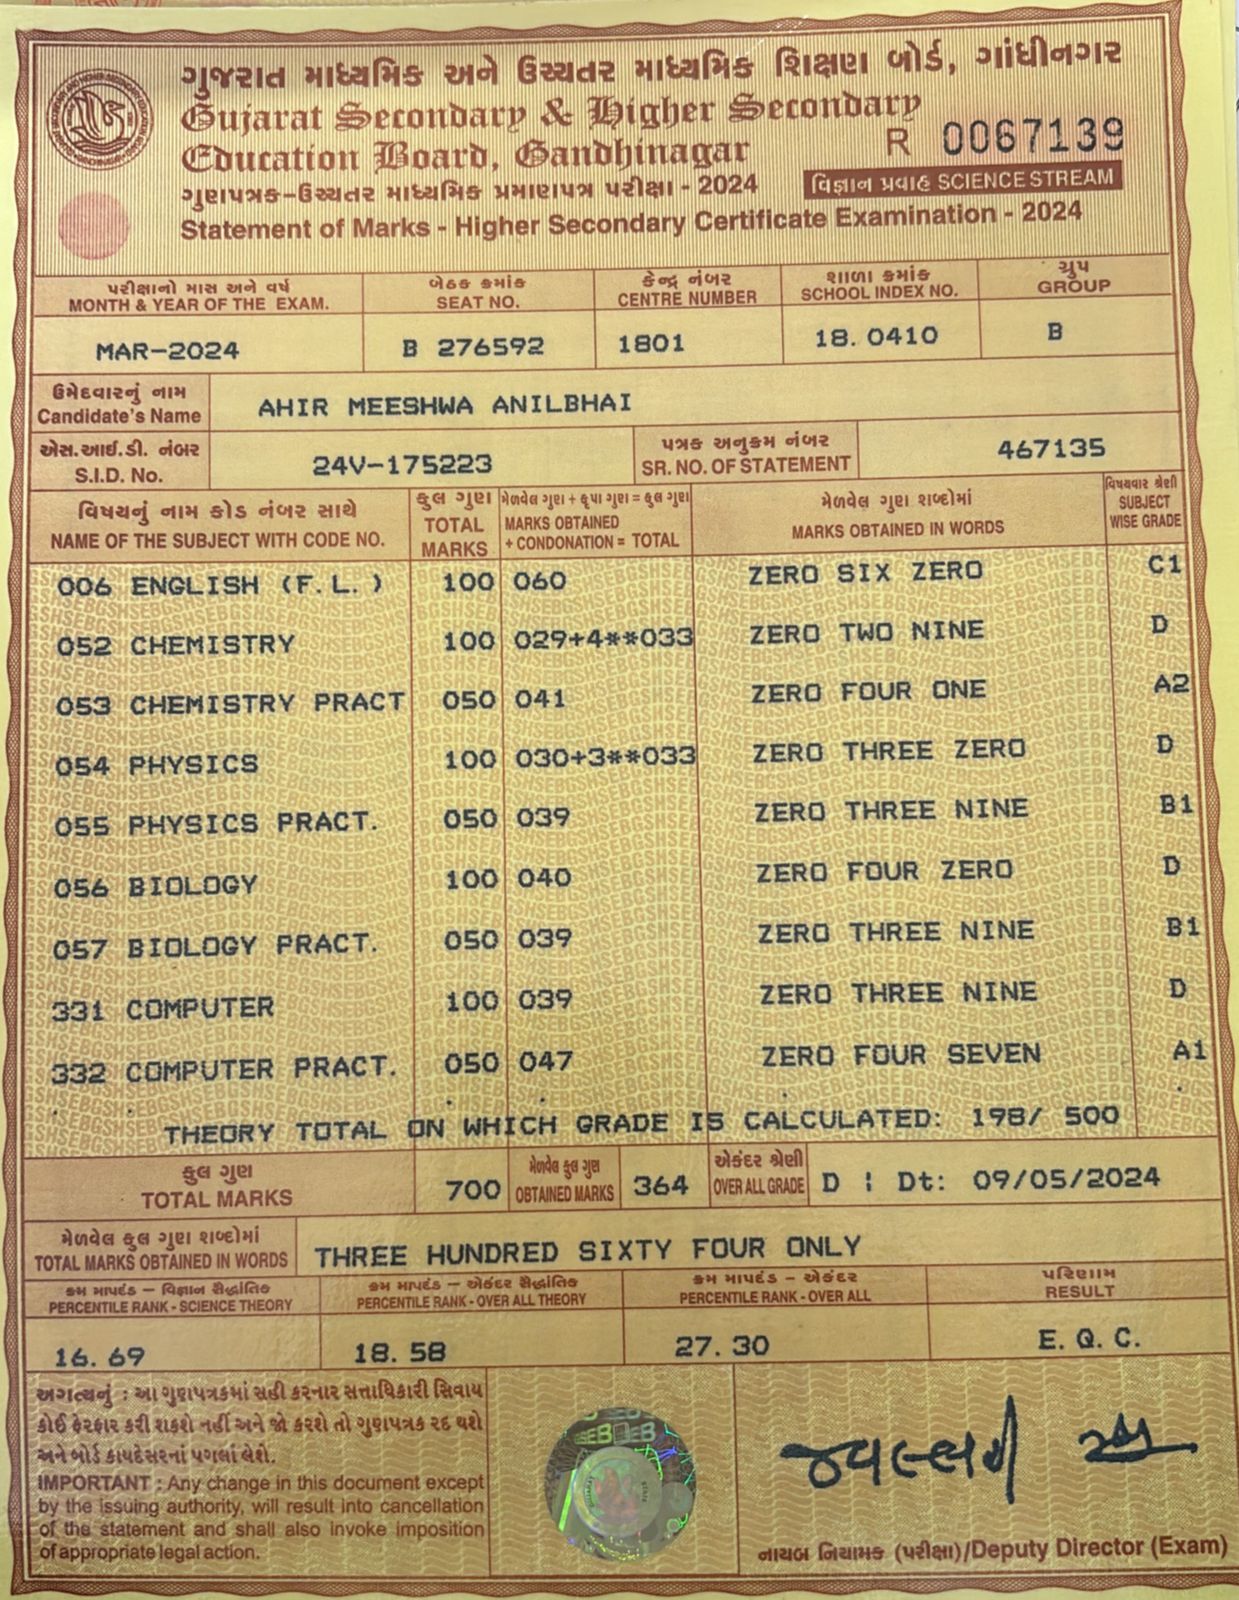 ગુજરાત માધ્યમિક અને ઉચ્ચતર માધ્યમિક શિક્ષણ બોર્ડ, ગાંધીનગર
Gujarat Secondary & Higher Secondary
Education Board, Gandhinagar
R 0067139
ગુણપત્રક-ઉચ્ચતર માધ્યમિક પ્રમાણપત્ર પરીક્ષા - 2024
વિજ્ઞાન પ્રવાહ SCIENCE STREAM
Statement of Marks - Higher Secondary Certificate Examination - 2024
પરીક્ષાનો માસ અને વર્ષ બેઠક ક્રમાંક કેન્દ્ર નંબર શાળા ક્રમાંક ગ્રુપ
MONTH & YEAR OF THE EXAM. SEAT NO. CENTRE NUMBER SCHOOL INDEX NO. GROUP
MAR-2024 B 276592 1801 18.0410 B
ઉમેદવારનું નામ
Candidate's Name AHIR MEESHWA ANILBHAI
એસ.આઈ.ડી. નંબર
S.I.D. No. 24V-175223
પત્રક અનુક્રમ નંબર
SR. NO. OF STATEMENT 467135
વિષયનું નામ કોડ નંબર સાથે
NAME OF THE SUBJECT WITH CODE NO.
કુલ ગુણ
TOTAL
MARKS
મેળવેલ ગુણ + કૃપા ગુણ = કુલ ગુણ
MARKS OBTAINED
+ CONDONATION = TOTAL
મેળવેલ ગુણ શબ્દોમાં
MARKS OBTAINED IN WORDS
વિષયવાર શ્રેણી
SUBJECT
WISE GRADE
006 ENGLISH (F.L.) 100 060 ZERO SIX ZERO C1
052 CHEMISTRY 100 029+4**033 ZERO TWO NINE D
053 CHEMISTRY PRACT 050 041 ZERO FOUR ONE A2
054 PHYSICS 100 030+3**033 ZERO THREE ZERO D
055 PHYSICS PRACT. 050 039 ZERO THREE NINE B1
056 BIOLOGY 100 040 ZERO FOUR ZERO D
057 BIOLOGY PRACT. 050 039 ZERO THREE NINE B1
331 COMPUTER 100 039 ZERO THREE NINE D
332 COMPUTER PRACT. 050 047 ZERO FOUR SEVEN A1
THEORY TOTAL ON WHICH GRADE IS CALCULATED: 198/ 500
કુલ ગુણ
TOTAL MARKS 700
મેળવેલ કુલ ગુણ
OBTAINED MARKS 364
એકંદર શ્રેણી
OVER ALL GRADE D : Dt: 09/05/2024
મેળવેલ કુલ ગુણ શબ્દોમાં
TOTAL MARKS OBTAINED IN WORDS THREE HUNDRED SIXTY FOUR ONLY
ક્રમ માપદંડ – વિજ્ઞાન સૈદ્ધાંતિક ક્રમ માપદંડ – એકંદર સૈદ્ધાંતિક ક્રમ માપદંડ - એકંદર પરિણામ
PERCENTILE RANK - SCIENCE THEORY PERCENTILE RANK - OVER ALL THEORY PERCENTILE RANK - OVER ALL RESULT
16.69 18.58 27.30 E.Q.C.
અગત્યનું : આ ગુણપત્રકમાં સહી કરનાર સત્તાધિકારી સિવાય
કોઈ ફેરફાર કરી શકશે નહીં અને જો કરશે તો ગુણપત્રક રદ થશે
અને બોર્ડ કાયદેસરનાં પગલાં લેશે.
IMPORTANT : Any change in this document except
by the issuing authority, will result into cancellation
of the statement and shall also invoke imposition
of appropriate legal action.
નાયબ નિયામક (પરીક્ષા)/Deputy Director (Exam)